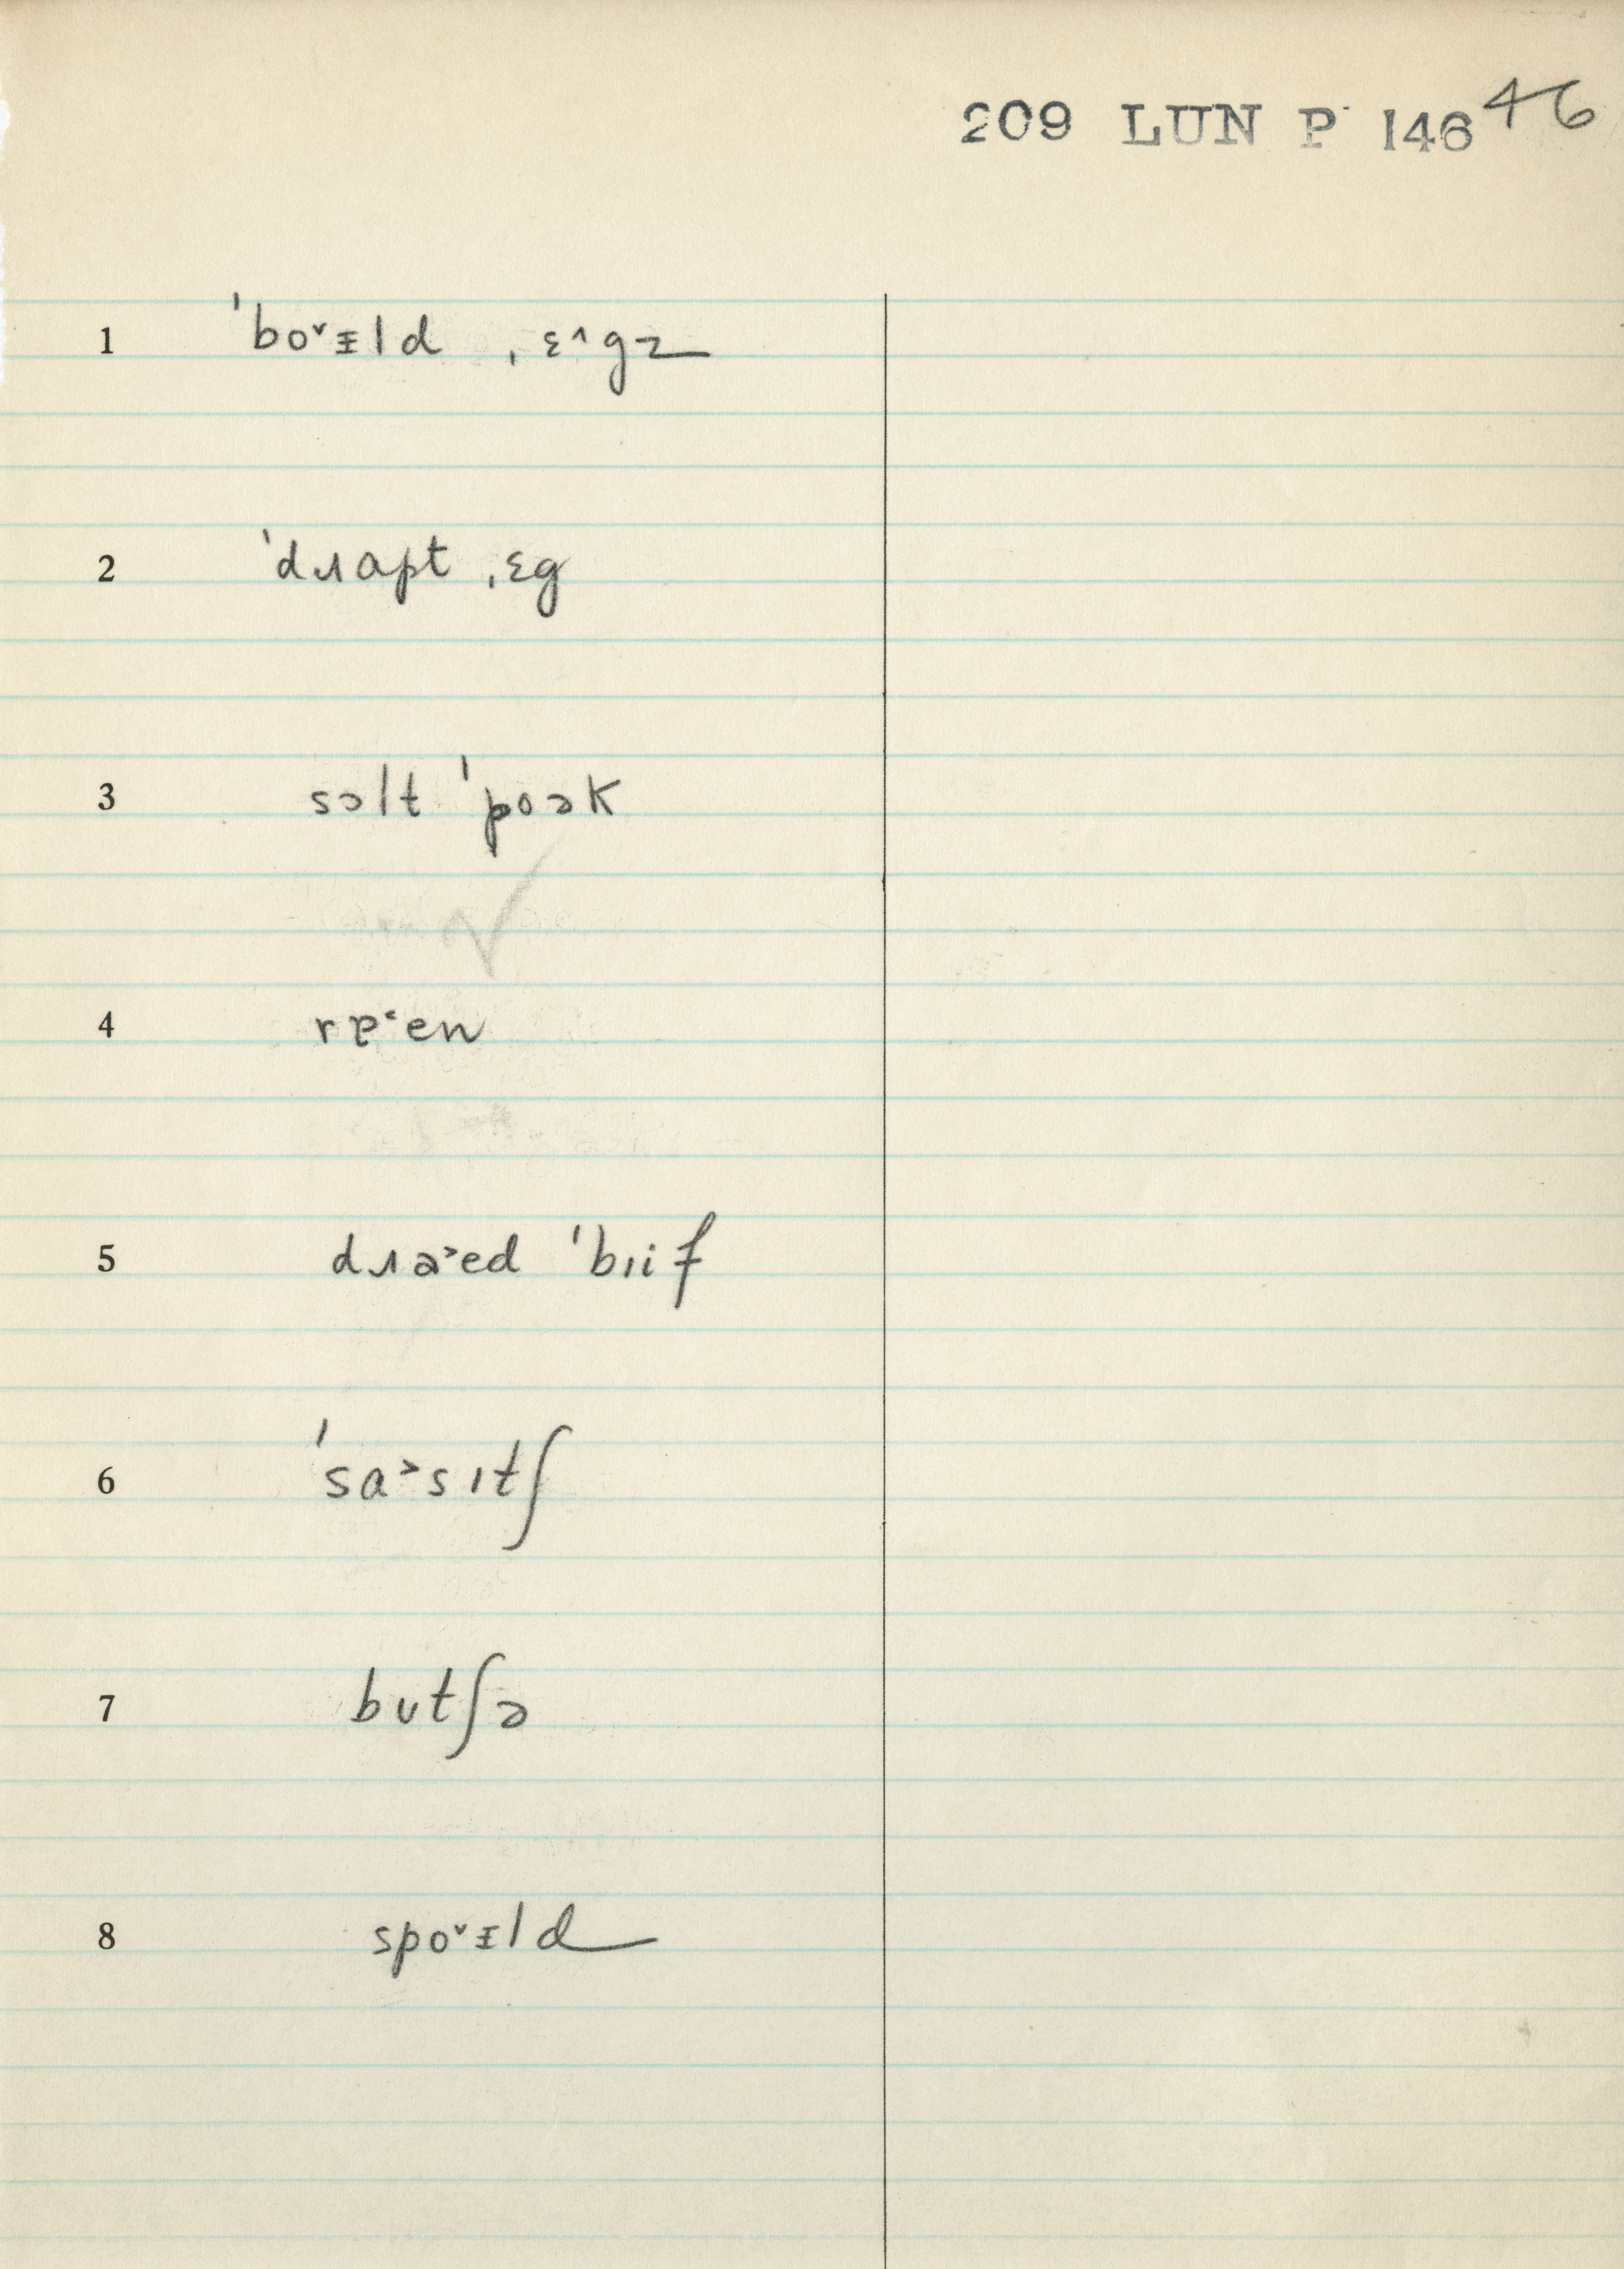 209 LUN P 146 46
1 ˈboˇɪ̵ld ˌɛ^gz
2 ˈdɹɑpt ˌɛg
3 sɔlt ˈpoək
4 rɐ˂en
5 dɹɑ˃ed ˈbɪif
6 ˈsɑ˃sɪtʃ
7 bʊtʃə
8 spoˇɪ̵ld